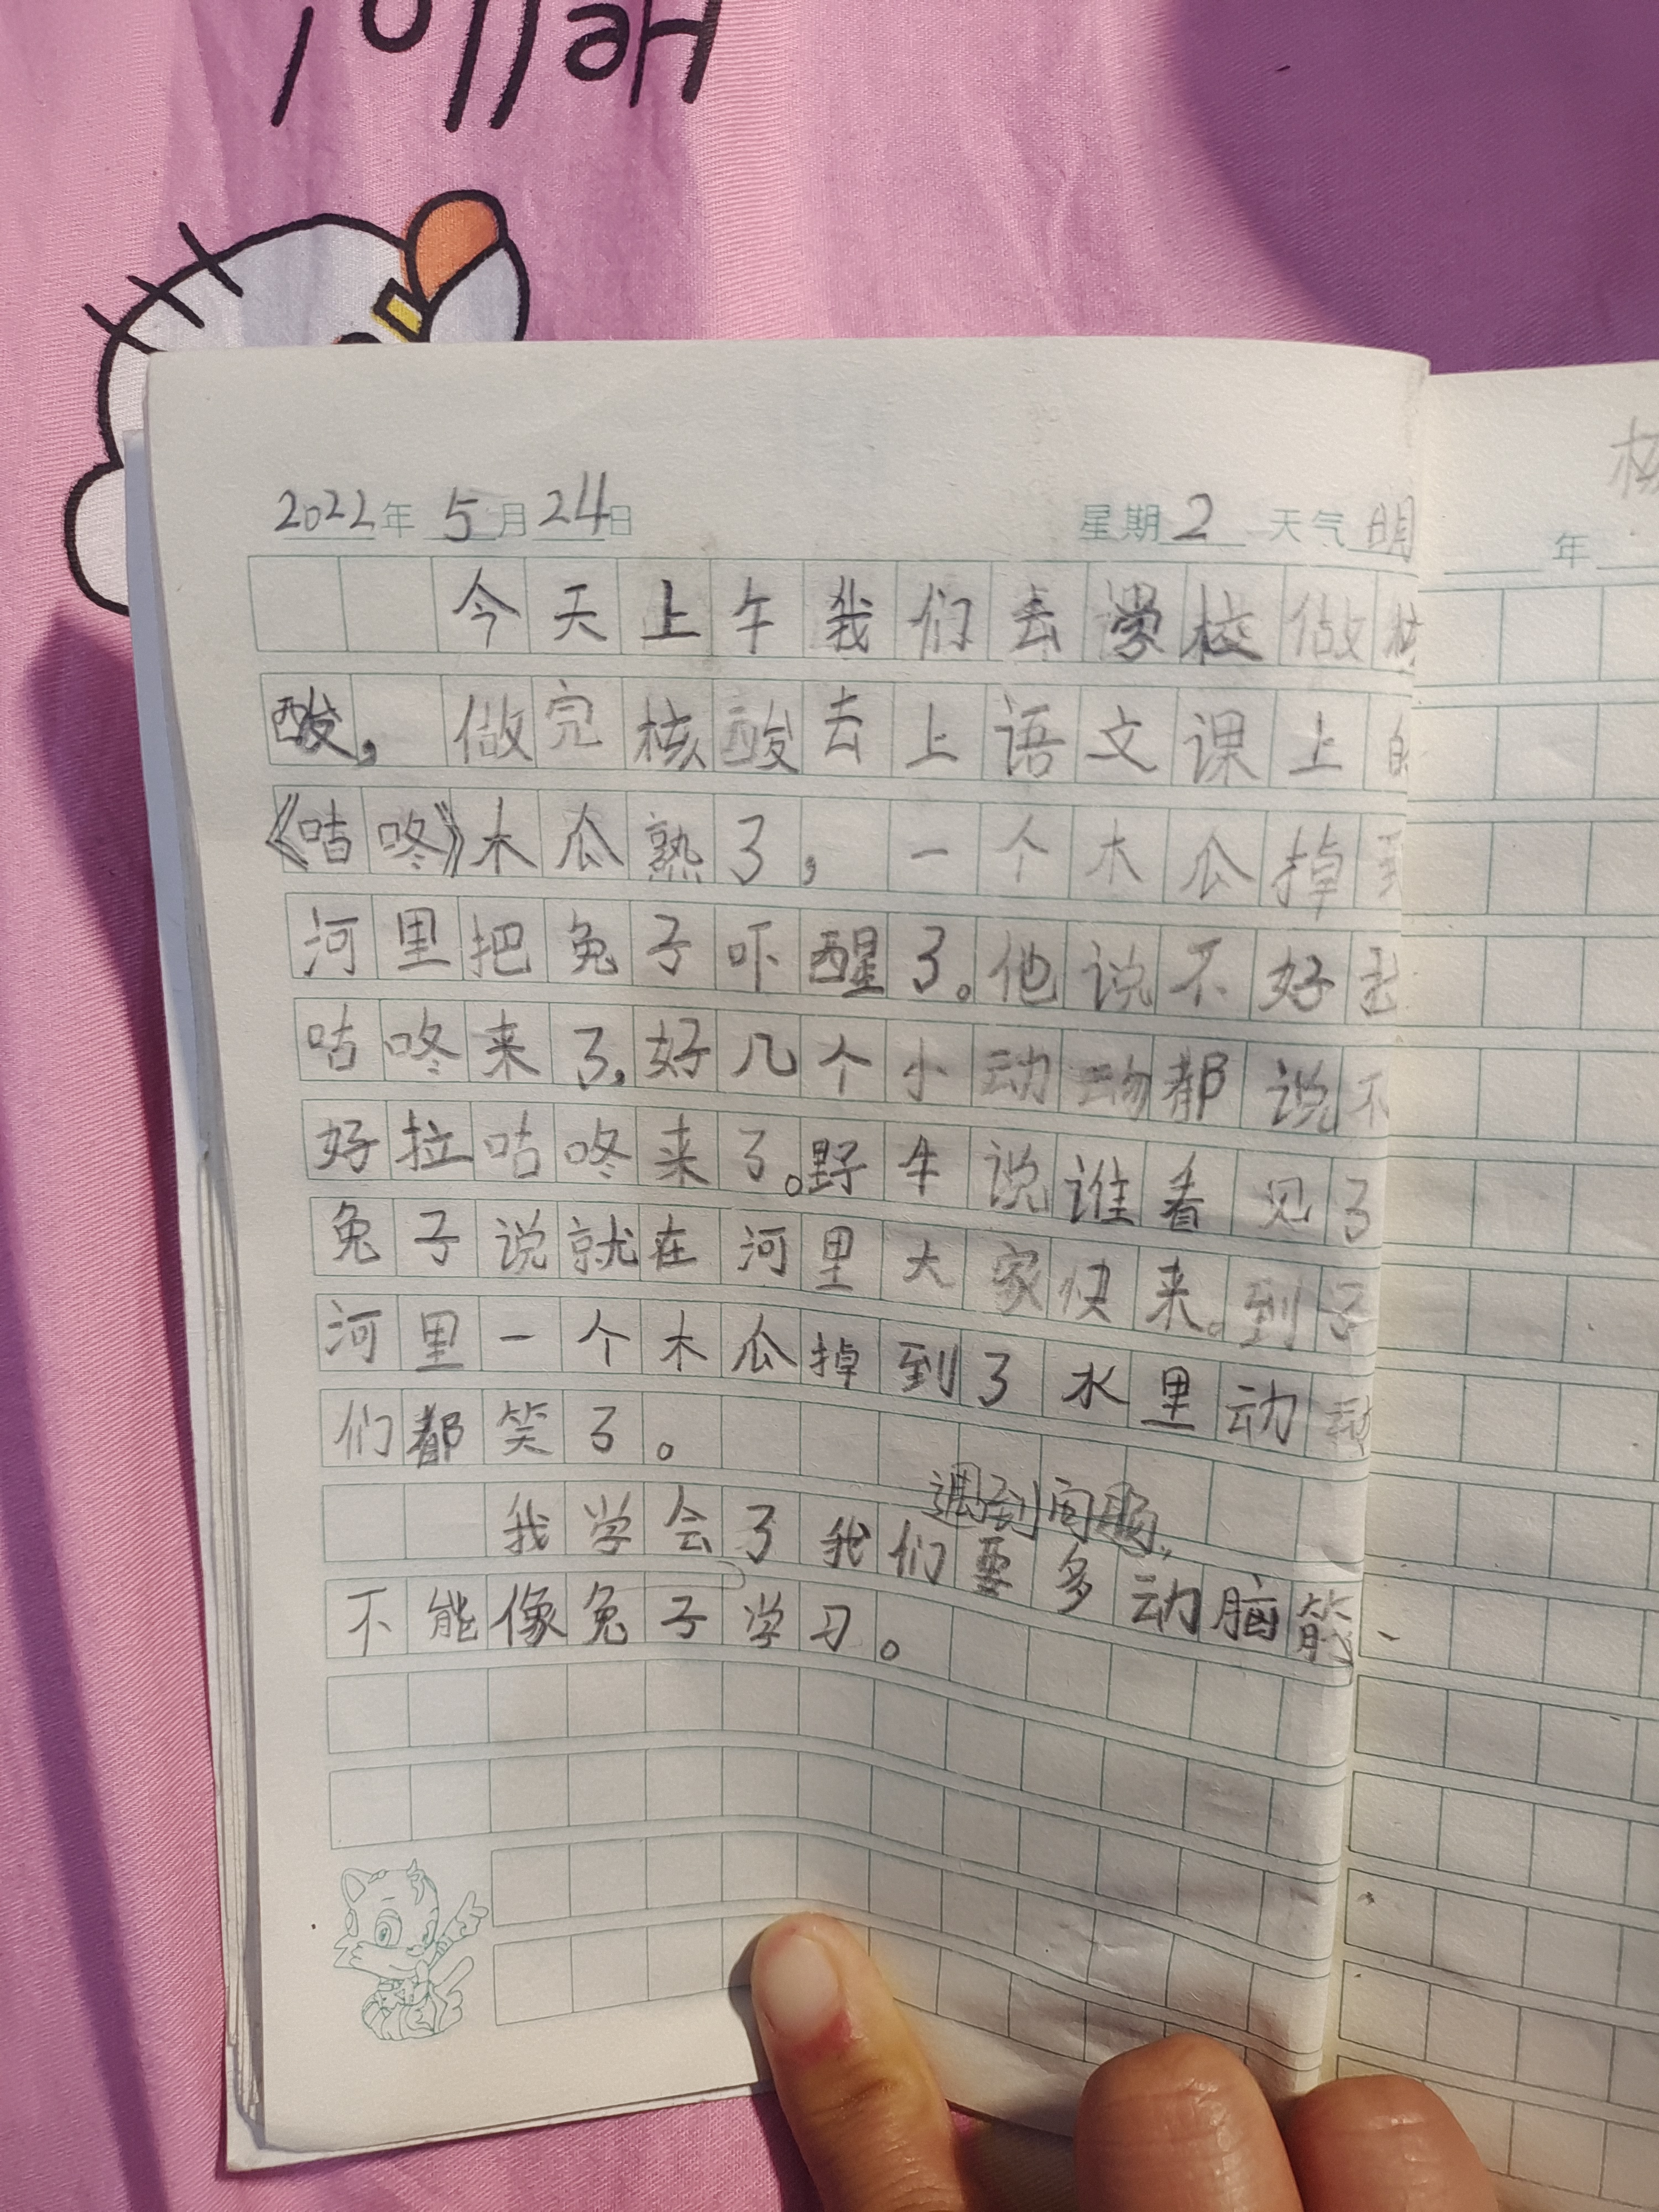 Hello
2022年 5月24日 星期2 天气明
今天上午我们去学校做核
酸，做完核酸去上语文课上的
《咕咚》木瓜熟了，一个木瓜掉到
河里把兔子吓醒了。他说不好
咕咚来了，好几个小动动都说不
好拉咕咚来了。野牛说谁看见了
兔子说就在河里大家快来。到了
河里一个木瓜掉到了水里动动
们都笑了。
遇到问题，
我学会了我们要多动脑筋、
不能像兔子学习。
年